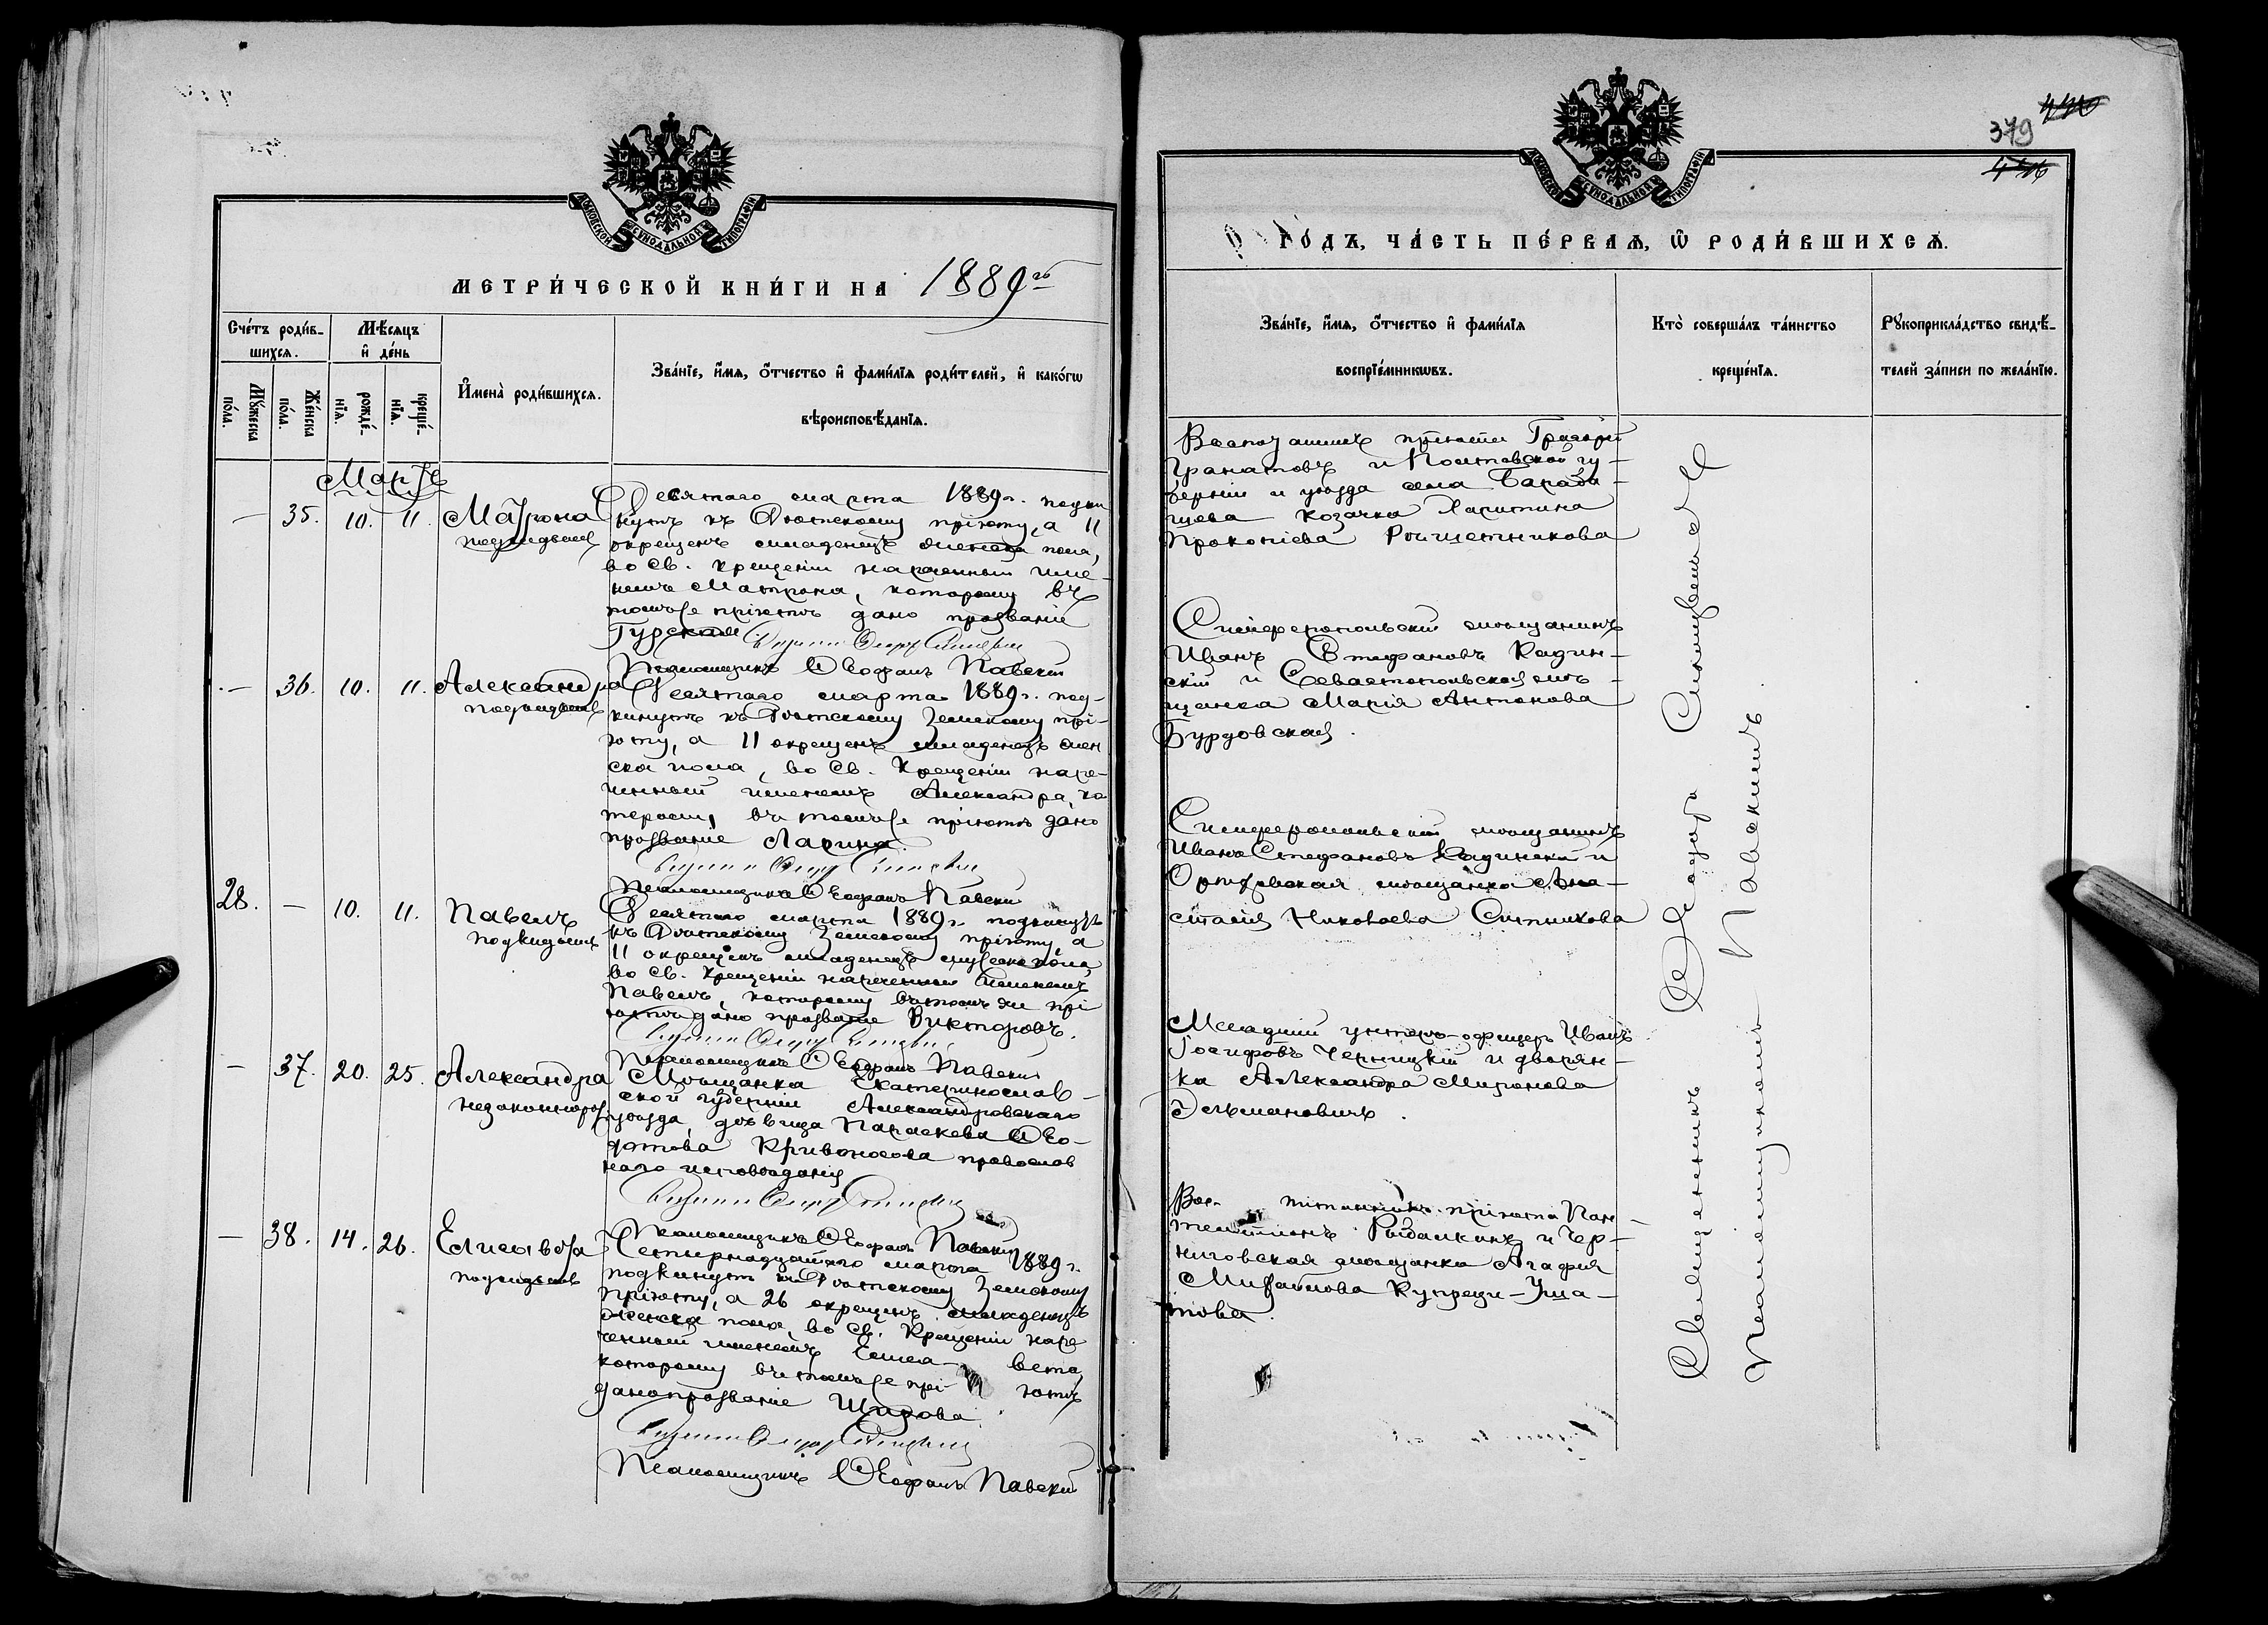 МОСКОВСКОЙ СѴНОДАЛЬНОЙ ТИПОГРАФІИ
МЕТРИ́ЧЕСКОЙ КНИ́ГИ НА 1889 го
Сче́тъ роди́в-
шихся.
Мѣ́сяцъ
и҆ де́нь
Мꙋ́жеска
по́ла.
Же́нска
по́ла.
рожде́-
нїѧ.
креще́-
нїѧ.
И҆мена̀ роди́вшихсѧ.
Зва́нїе, и҆́мѧ, ѻ҆́тчество и҆ фами́лїѧ роди́телей, и҆ како́гѡ
вѣроисповѣ́данїѧ.
Мартъ
— 35. 10. 11. Матрона
подкидышъ
Десятаго марта 1889 г. подки
нутъ къ Дѣтскому пріюту, а 11
окрещенъ младенецъ женска пола,
во Св. Крещеніи нареченный име-
немъ Матрона, которому въ
томъ же пріютѣ дано прозваніе
Гурская
Псаломщикъ Ѳеофанъ Павскій
— 36. 10. 11. Александра
подкидышъ
Десятаго марта 1889 г. под-
кинутъ къ Дѣтскому Земскому прі-
юту, а 11 окрещенъ младенецъ жен
ска пола, во Св. Крещеніи наре-
ченный именемъ Александра, ко
торому въ томъ же пріютѣ дано
прозваніе Ларина.
Псаломщикъ Ѳеофанъ Павскій
28. — 10. 11. Павелъ
подкидышъ
Десятаго марта 1889 г. подкинутъ
къ Дѣтскому Земскому пріюту, а
11 окрещенъ младенецъ мужеска пола,
во Св. Крещеніи нареченный именемъ
Павелъ, которому въ томъ же прі
ютѣ дано прозваніе Викторовъ.
Псаломщикъ Ѳеофанъ Павскій
— 37. 20. 25. Александра
незаконнорож.
Мѣщанка Екатеринослав-
ской губерніи Александровскаго
уѣзда, дѣвица Параскева Ѳео-
дотова Кривоносова православ
наго исповѣданія
Псаломщикъ Ѳеофанъ Павскій
— 38. 14. 26. Елисавета
подкидышъ
Четырнадцатаго марта 1889 г.
подкинутъ къ Дѣтскому Земскому
пріюту, а 26 окрещенъ младенецъ
женска пола, во Св. Крещеніи наре
ченный именемъ Елиса- вета,
которому въ томъ же прі- ютѣ
дано прозваніе Широва.
Псаломщикъ Ѳеофанъ Павскій
379
МОСКОВСКОЙ СѴНОДАЛЬНОЙ ТИПОГРАФІИ
ГО́ДЪ, ЧА́СТЬ ПЕ́РВАѦ, Ѡ҆ РОДИ́ВШИХСѦ.
Зва́нїе, и҆́мѧ, ѻ҆́тчество и҆ фами́лїѧ
воспрїе́мникѡвъ.
Кто̀ соверша́лъ та́инство
креще́нїѧ.
Рꙋкоприкла́дство свидѣ́-
телей за́писи по жела́нїю.
пріюта Григорій
Гранатовъ и Полтавской гу-
берніи и уѣзда села
козачка Харитина
Прокопіева Рѣшетникова
Симферопольскій мѣщанинъ
Иванъ Стефановъ Кадин-
скій и Севастопольская мѣ-
щанка Марія Антонова
Бурдовская.
Симферопольскій мѣщанинъ
Иванъ Стефановъ Кадинскій и
Орѣховская мѣщанка Ана-
стасія Николаева Ситникова
Младшій унтеръ-офицеръ Иванъ
Іосифовъ Черницкій и дворян-
ка Александра Миронова
Эльмановичъ.
Вос- питанникъ пріюта Пан-
телеимонъ Рыбалкинъ и Чер-
ниговская мѣщанка Агафія
Михайлова Купреди-Уша-
кова.
Священникъ Ѳеодоръ
Псаломщикомъ Павскимъ